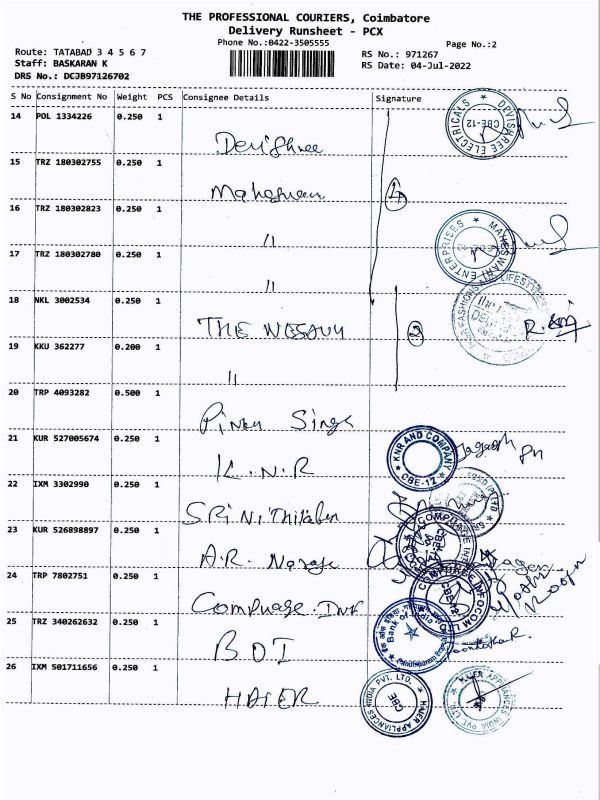 THE PROFESSIONAL COURIERS, Coimbatore
Delivery Runsheet - PCX
Phone No.:0422-3505555
Page No.:2
Route: TATABAD 3 4 5 6 7
Staff: BASKARAN K
DRS No.: DCJB97126702
RS No.: 971267
RS Date: 04-Jul-2022
S No Consignment No Weight PCS Consignee Details Signature
14 POL 1334226 0.250 1
DEVISHREE ELECTRICALS ★ CBE-12
Devishree
15 TRZ 180302755 0.250 1
①
16 TRZ 180302823 0.250 1
"
MAHESWARI ENTERPRISES ★
17 TRZ 180302780 0.250 1
"
18 NKL 3002534 0.250 1
THE NESAVU
②
FASHIONS LIFESTYLE
19 KKU 362277 0.200 1
"
20 TRP 4093282 0.500 1
Singh
21 KUR 527005674 0.250 1
K.N.R
KNR AND COMPANY ★ CBE-12 ★
22 IXM 3302990 0.250 1
23 KUR 526898897 0.250 1
A.R.
24 TRP 7802751 0.250 1
COMPUAGE INFOCOM LTD
Compuage Inf
25 TRZ 340262632 0.250 1
BOI
Bank of India
26 IXM 501711656 0.250 1
HAIER
HAIER APPLIANCES INDIA PVT. LTD. CBE
HAIER APPLIANCES INDIA PVT LTD